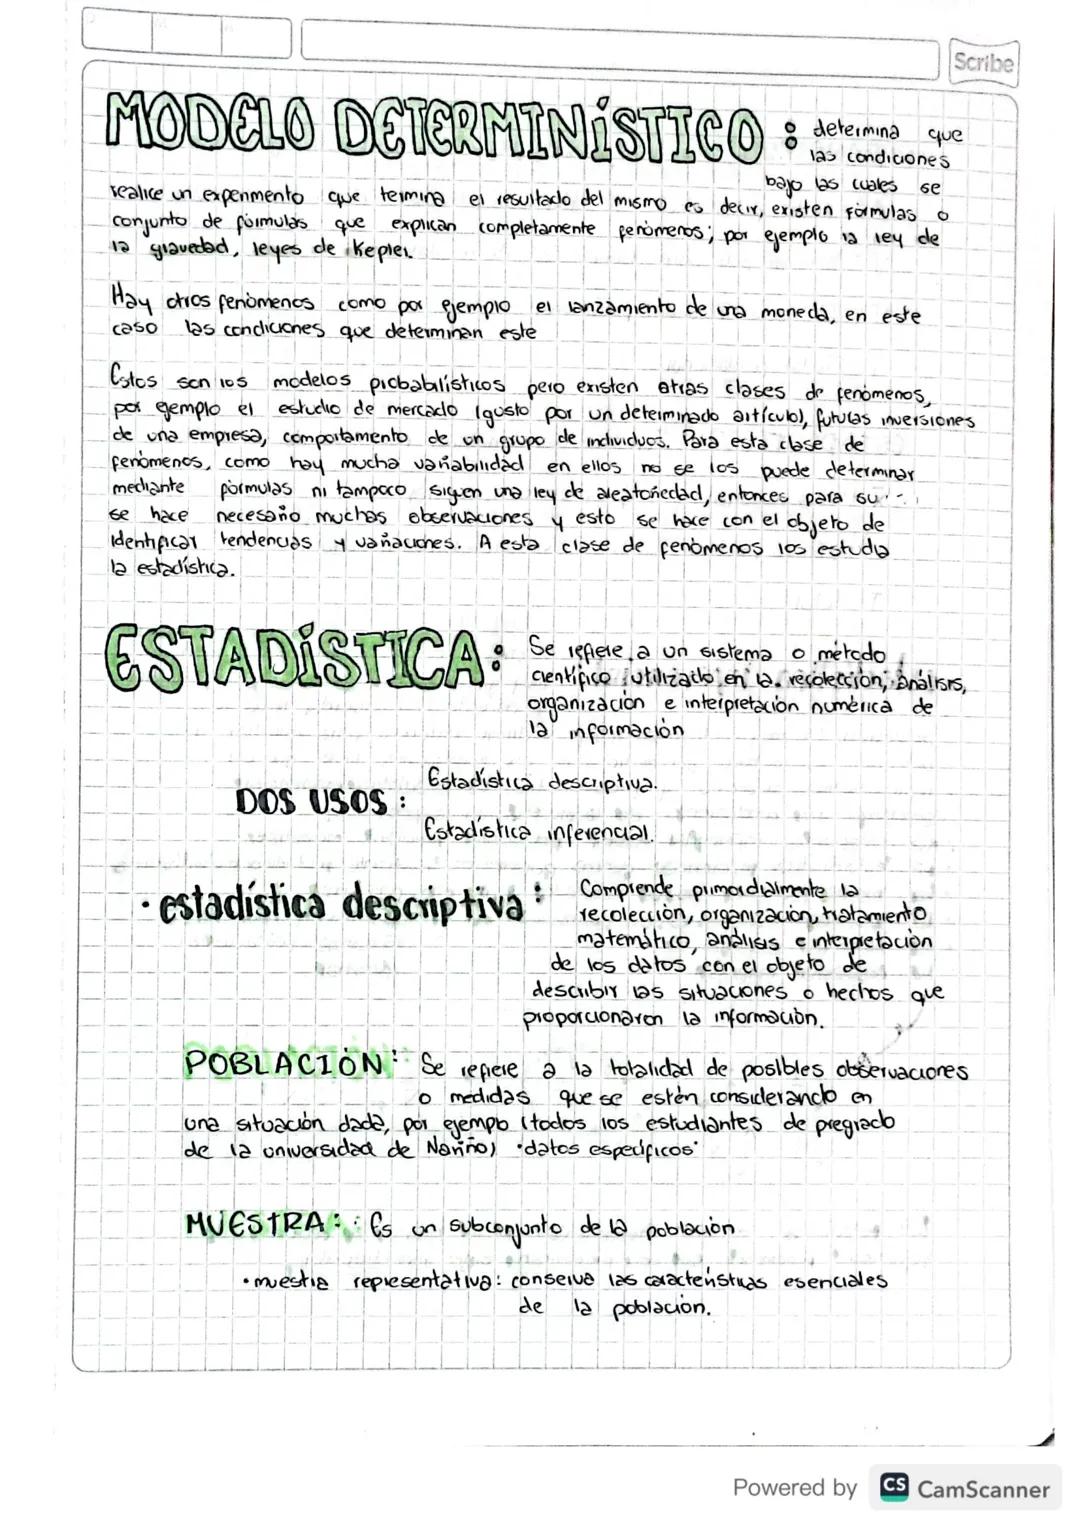 Scribe
MODELO DETERMINÍSTICO : determina que
las condiciones
bajo las cuales se
realice un experimento que termina el resultado del mismo es decir, existen fórmulas o
conjunto de fórmulas que explican completamente fenómenos; por ejemplo la ley de
la gravedad, leyes de Kepler.
Hay otros fenómenos como por ejemplo el lanzamiento de una moneda, en este
caso las condiciones que determinan este
Estos son los modelos probabilísticos pero existen otras clases de fenómenos,
por ejemplo el estudio de mercado (gusto por un determinado artículo), futuras inversiones
de una empresa, comportamiento de un grupo de individuos. Para esta clase de
fenómenos, como hay mucha variabilidad en ellos no se los puede determinar
mediante fórmulas ni tampoco siguen una ley de aleatoriedad, entonces para su
se hace necesario muchas observaciones y esto se hace con el objeto de
identificar tendencias y variaciones. A esta clase de fenómenos los estudia
la estadística.
ESTADÍSTICA: Se refiere a un sistema o método
científico utilizado en la recolección, análisis,
organización e interpretación numérica de
la información
Estadística descriptiva.
DOS USOS :
Estadística inferencial.
• estadística descriptiva : Comprende primordialmente la
recolección, organización, tratamiento
matemático, análisis e interpretación
de los datos con el objeto de
describir las situaciones o hechos que
proporcionaron la información.
POBLACIÓN : Se refiere a la totalidad de posibles observaciones
o medidas que se estén considerando en
una situación dada, por ejemplo (todos los estudiantes de pregrado
de la universidad de Nariño) "datos específicos"
MUESTRA : Es un subconjunto de la población
• muestra representativa: conserva las características esenciales
de la población.
Powered by CS CamScanner